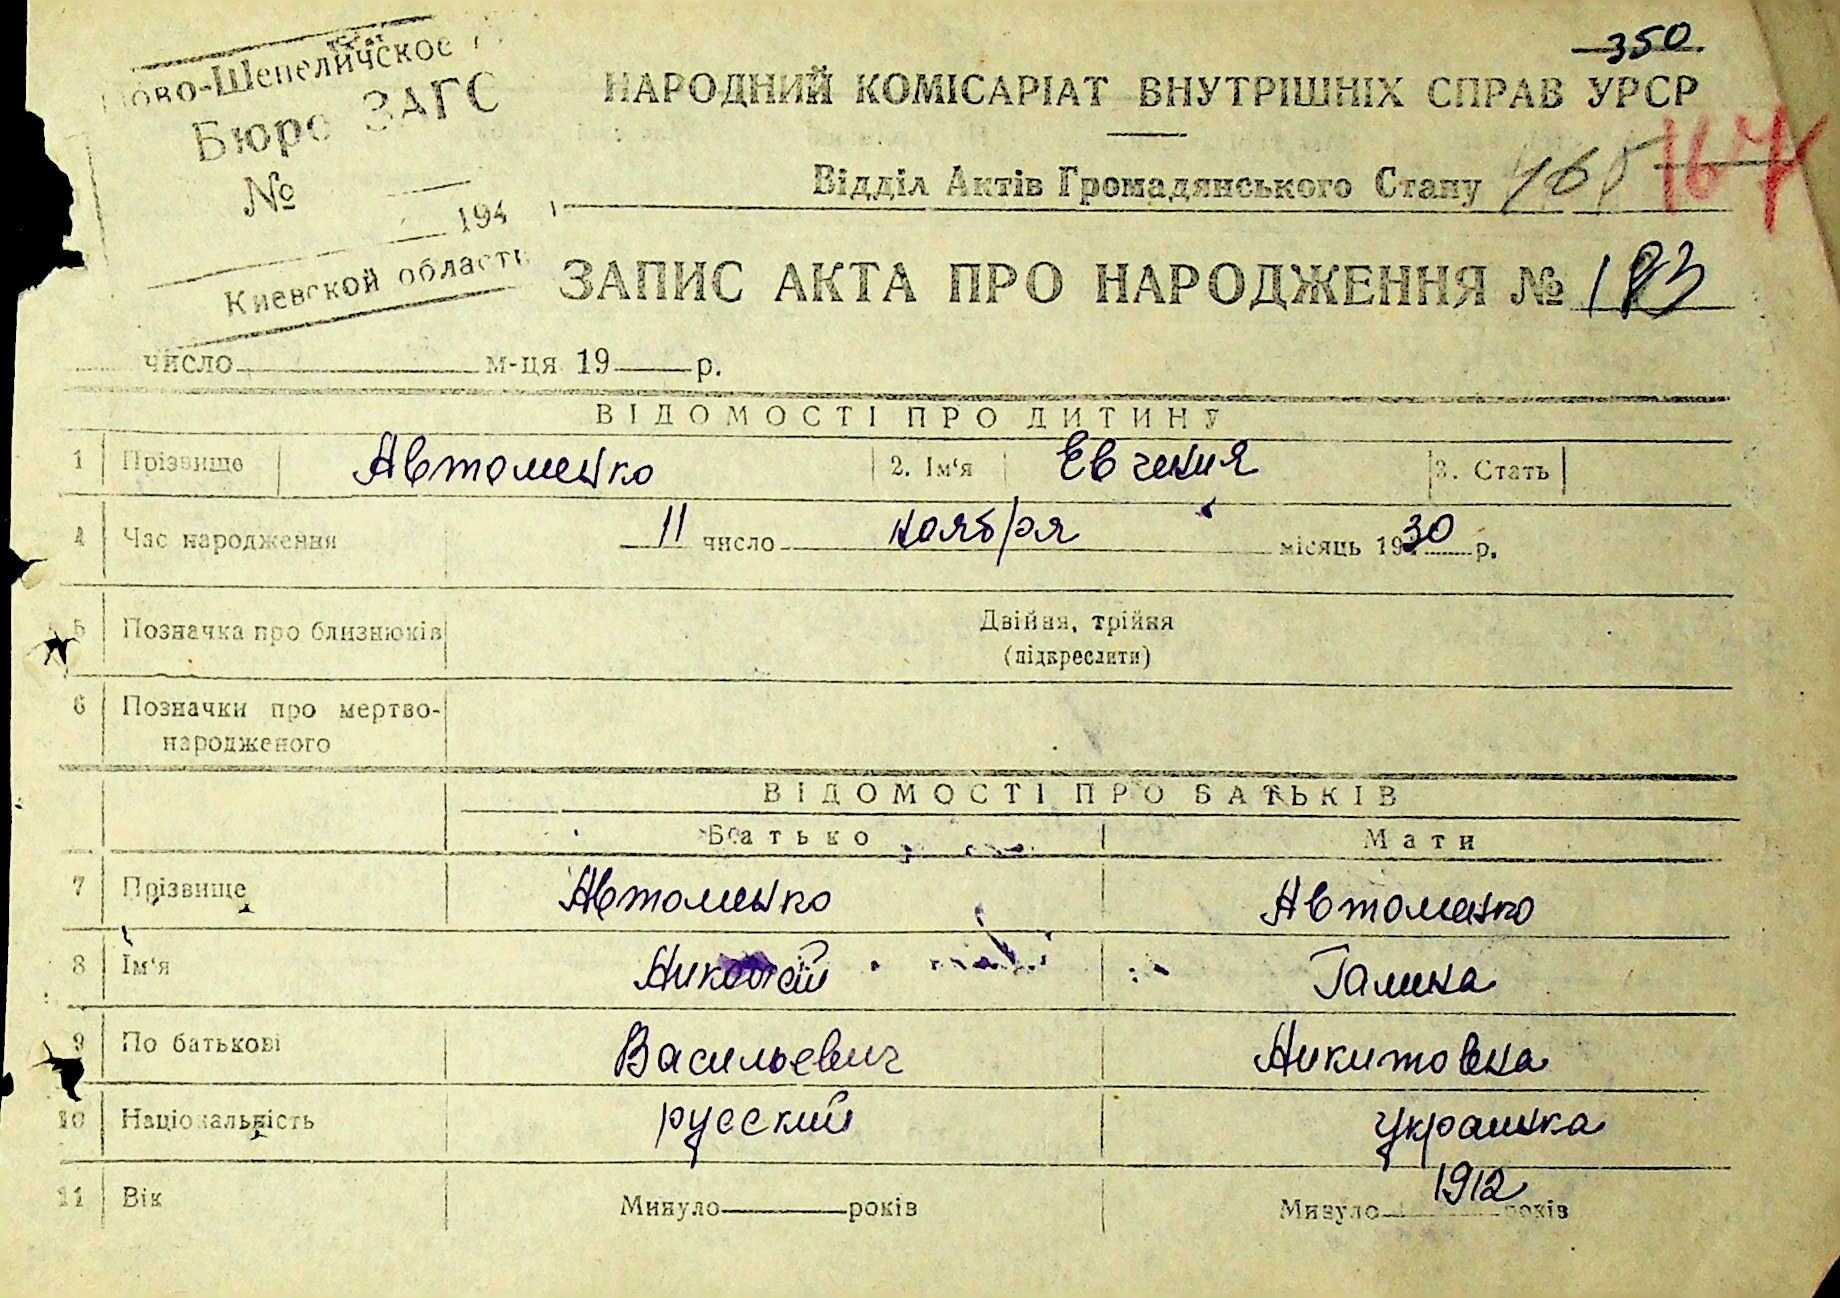 350
Ново-Шепеличское
Бюро ЗАГС
№
194
Киевской области
НАРОДНИЙ КОМІСАРІАТ ВНУТРІШНІХ СПРАВ УРСР
Відділ Актів Громадянського Стану
167
ЗАПИС АКТА ПРО НАРОДЖЕННЯ № 183
число м-ця 19 р.
ВІДОМОСТІ ПРО ДИТИНУ
1 Прізвище Автоменко 2. Ім'я Евгения 3. Стать
4 Час народження 11 число ноября місяць 1930 р.
5 Позначка про близнюків Двійня, трійня
(підкреслити)
6 Позначки про мертво-
народженого
ВІДОМОСТІ ПРО БАТЬКІВ
Батько Мати
7 Прізвище Автоменко Автоменко
8 Ім'я Николай Галина
9 По батькові Васильевич Никитовна
10 Національність русский украинка
11 Вік Минуло років Минуло 1912 років